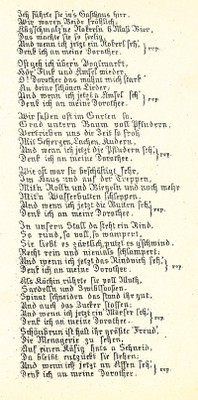 Ich führte sie in's Gasthaus hier,
Wir waren Beide fröhlich,
Das machte sie so seelig,
Und wenn ich jetzt ein Rokerl seh',
Denk ich an meine Dorothee. } rep.
Oft geh ich über'n Vogelmarkt,
Hör' Fink und Amsel wieder,
O! Dorothee das mahnt mich stark
An deine schönen Lieder,
Und wenn ich jetzt a Amsel seh'
Denk ich an meine Dorothee. } rep.
Wir saßen oft im Garten so,
Grad untern Baum voll Pflaumen,
Vertrieben uns die Zeit so froh
Mit Scherzen, Lachen,
Und wenn ich jetzt die seh',
Denk ich an meine Dorothee. } rep.
Wie oft war sie beschäftigt sehr,
Im Haus und auf der Treppen,
und noch mehr
schleppen,
Und wenn ich jetzt die seh',
Denk ich an meine Dorothee. } rep.
In unserm Stall da steht ein Rind,
So rund, so voll, so wampert,
Sie liebt es zärtlich, putzt es g'schwind,
Recht rein und niemals schlampert;
Und wenn ich jetzt das Rindvieh seh',
Denk ich an meine Dorothee. } rep.
Als Köchin rührte sie voll Muth,
Sardelln und
Spinat schneiden das stand ihr gut,
Und auch das Zucker stoßen;
Und wenn ich jetzt ein Mörser seh'
Denk ich an meine Dorothee. } rep.
Schönbrun ist halt ihr größte Freud',
Die Menagerie zu sehen,
Auf einen Käfig hats a Schneid,
Da bleibt entzückt sie stehen;
Und wenn ich jetzt an Affen seh',
Denk ich an meine Dorothee. } rep.